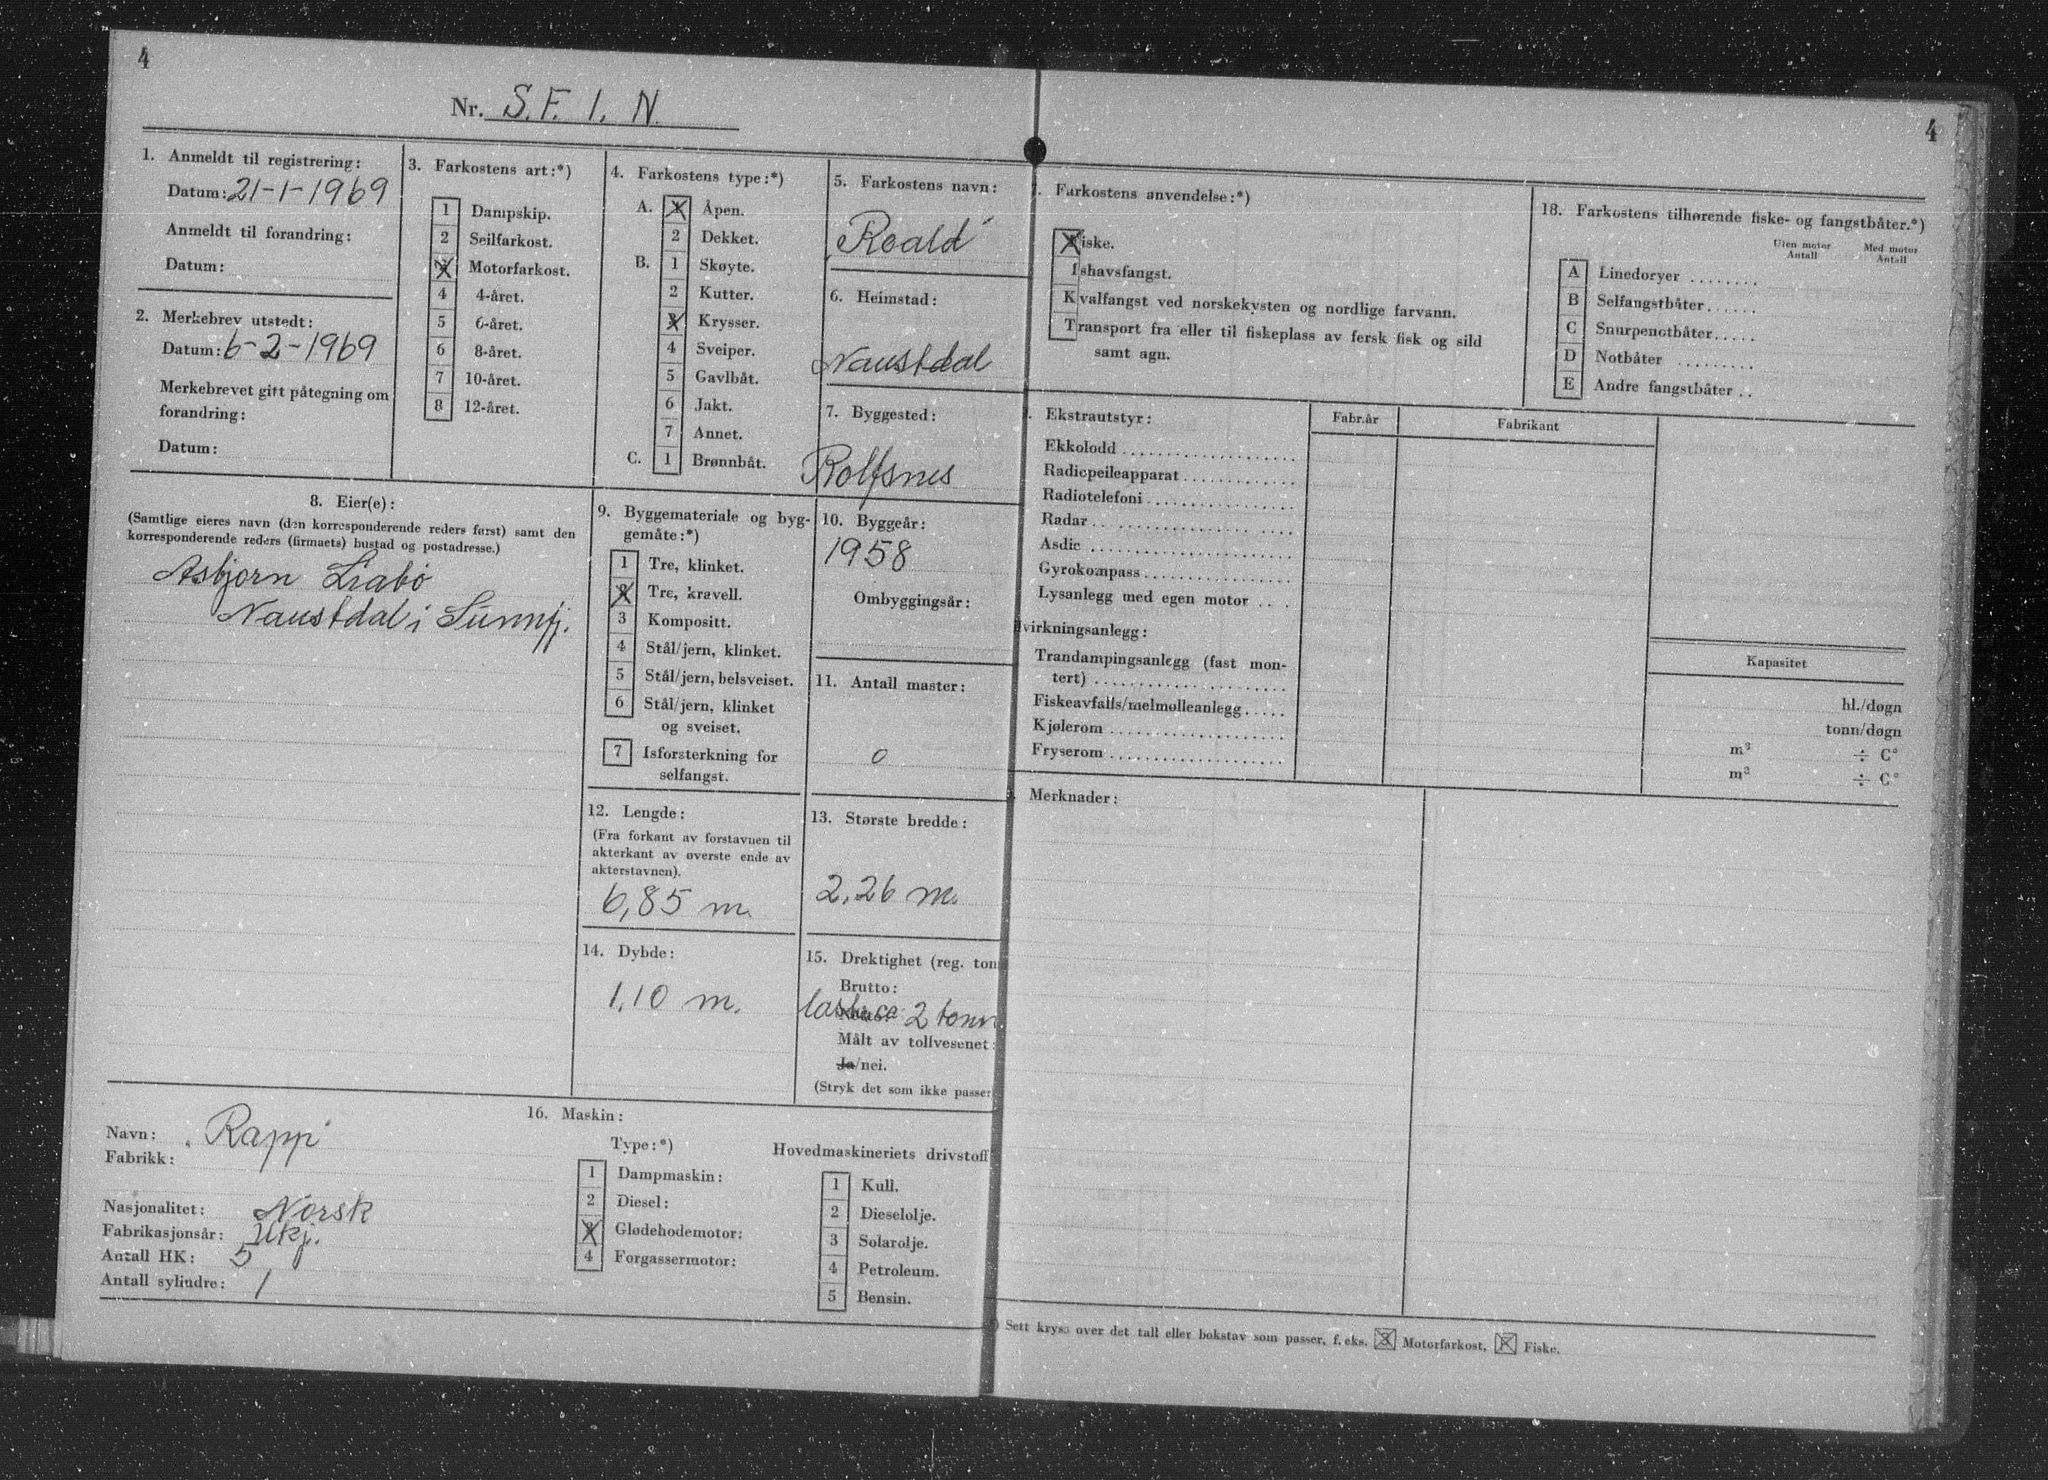 4
4
Nr. S.F. 1. N.
1. Anmeldt til registrering:
Datum: 21-1-1969
Anmeldt til forandring:
Datum:
2. Merkebrev utstedt:
Datum: 6-2-1969
Merkebrevet gitt påtegning om
forandring:
Datum:
3. Farkostens art:*)
1 Dampskip.
2 Seilfarkost.
3 Motorfarkost.
4 4-året.
5 6-året.
6 8-året.
7 10-året.
8 12-året.
4. Farkostens type:*)
A. 1 Åpen.
2 Dekket.
B. 1 Skøyte.
2 Kutter.
3 Krysser.
4 Sveiper.
5 Gavlbåt.
6 Jakt.
7 Annet.
C. 1 Brønnbåt.
5. Farkostens navn:
Roald
6. Heimstad:
Naustdal
7. Byggested:
Rolfsnes
8. Eier(e):
(Samtlige eieres navn (den korresponderende reders først) samt den
korresponderende reders (firmaets) bustad og postadresse.)
Asbjørn Liabø
Naustdal i Sunnfj.
9. Byggemateriale og byg-
gemåte:*)
1 Tre, klinket.
2 Tre, kravell.
3 Kompositt.
4 Stål/jern, klinket.
5 Stål/jern, helsveiset.
6 Stål/jern, klinket
og sveiset.
7 Isforsterkning for
selfangst.
10. Byggeår:
1958
Ombyggingsår:
11. Antall master:
0
12. Lengde:
(Fra forkant av forstavnen til
akterkant av øverste ende av
akterstavnen).
6,85 m.
13. Største bredde:
2,26 m.
14. Dybde:
1,10 m.
15. Drektighet (reg. ton
Brutto:
Netto:
last ca. 2 tonn
Målt av tollvesenet:
Ja/nei.
(Stryk det som ikke passer
16. Maskin:
Navn: Rapp
Fabrikk:
Nasjonalitet: Norsk
Fabrikasjonsår: Ukj.
Antall HK: 5
Antall sylindre: 1
Type:*)
1 Dampmaskin:
2 Diesel:
3 Glødehodemotor:
4 Forgassermotor:
Hovedmaskineriets drivstoff
1 Kull.
2 Dieselolje.
3 Solarolje.
4 Petroleum.
5 Bensin.
. Farkostens anvendelse:*)
Fiske.
Ishavsfangst.
Kvalfangst ved norskekysten og nordlige farvann.
Transport fra eller til fiskeplass av fersk fisk og sild
samt agn.
18. Farkostens tilhørende fiske- og fangstbåter.*)
Uten motor Antall
Med motor Antall
A Linedoryer
B Selfangstbåter
C Snurpenotbåter
D Notbåter
E Andre fangstbåter
. Ekstrautstyr:
Fabr.år
Fabrikant
Ekkolodd
Radiopeileapparat
Radiotelefoni
Radar
Asdic
Gyrokompass
Lysanlegg med egen motor
lvirkningsanlegg:
Trandampingsanlegg (fast mon-
tert)
Fiskeavfalls/melmølleanlegg
Kjølerom
Fryserom
Kapasitet
hl./døgn
tonn/døgn
m² ÷ C°
m² ÷ C°
Merknader:
) Sett kryss over det tall eller bokstav som passer, f. eks. 3 Motorfarkost, F Fiske.